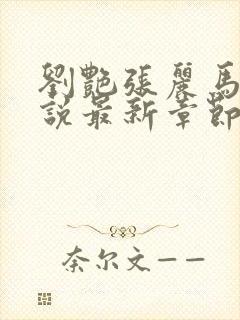 劉艷張麗馬
說最新章節
奈尔文——